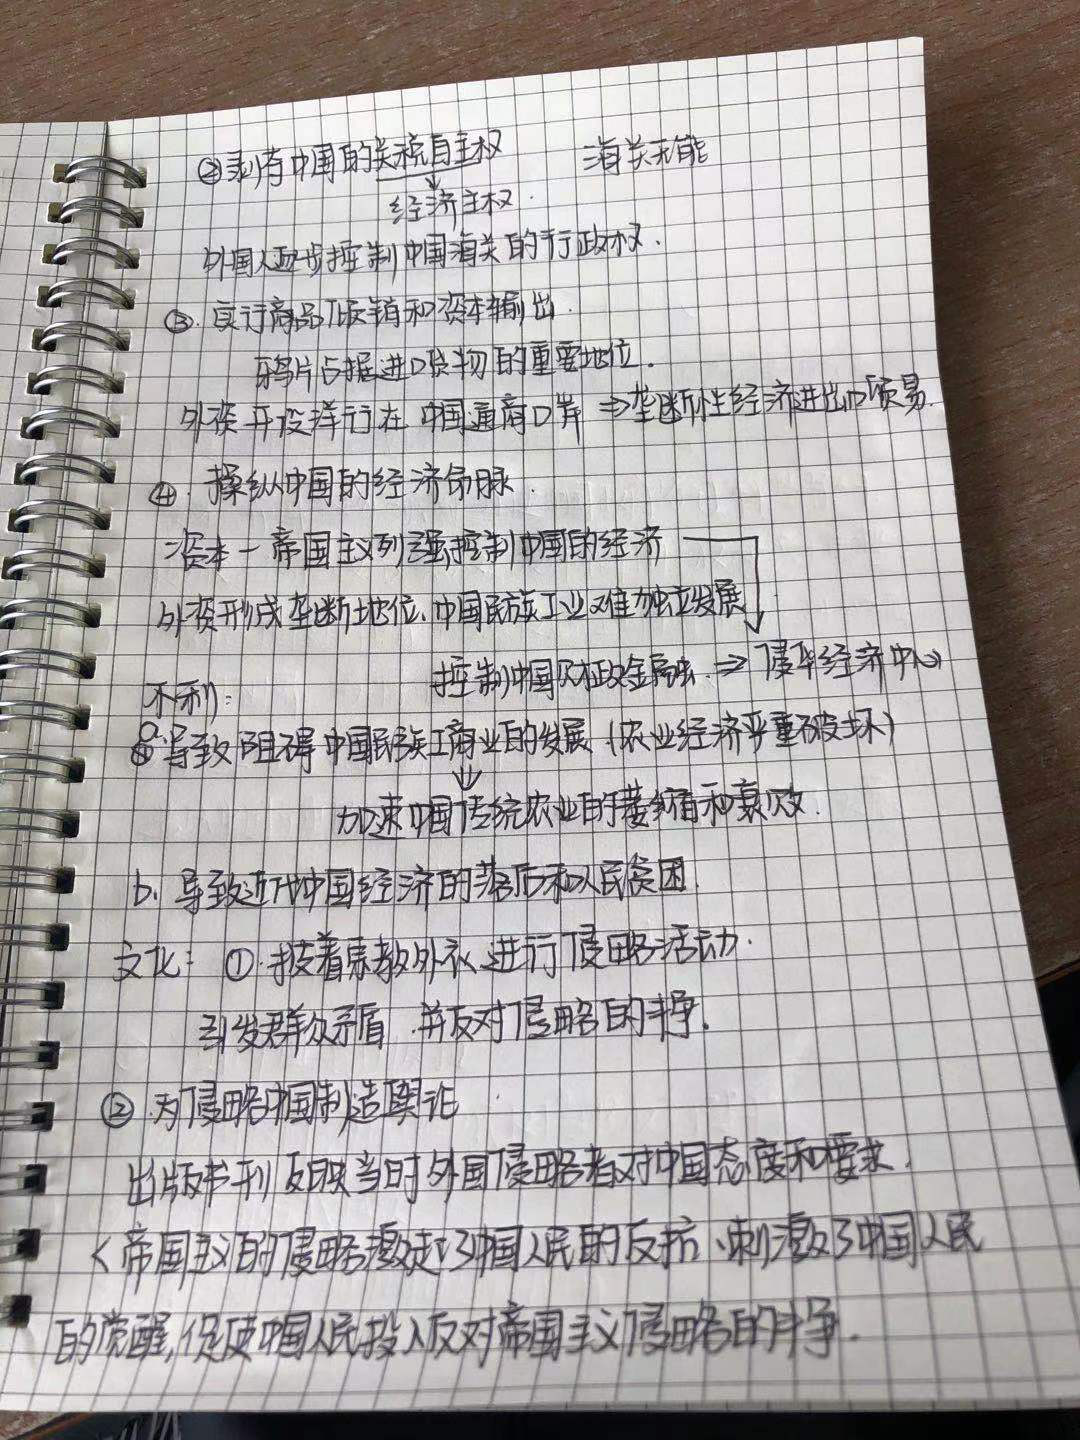 ②剥夺中国的关税自主权 海关无能
经济主权.
外国人逐步控制中国海关的行政权.
③.实行商品倾销和资本输出.
鸦片占据进口货物的重要地位.
外资开设洋行在中国通商口岸⇒垄断性经济进出口贸易.
④.操纵中国的经济命脉.
资本-帝国主义列强控制中国的经济
外资形成垄断地位、中国民族工业难独立发展
控制中国财政金融.⇒侵华经济中心
不利:
a.导致阻碍中国民族工商业的发展(农业经济严重破坏)
加速中国传统农业的萎缩和衰败.
b.导致近代中国经济的落后和人民贫困.
文化:①.披着宗教外衣,进行侵略活动.
引发群众矛盾.并反对侵略的斗争.
②.为侵略中国制造舆论
出版书刊反映当时外国侵略者对中国态度和要求.
<帝国主义的侵略激起了中国人民的反抗、刺激了中国人民
的觉醒,促使中国人民投入反对帝国主义侵略的斗争.